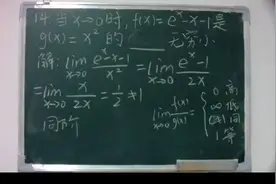 14.当x→0时,f(x)=e^x-x-1是
g(x)=x²的____无穷小.
解: lim_{x→0} (e^x-x-1)/x² = lim_{x→0} (e^x-1)/2x
=lim_{x→0} x/2x = 1/2 ≠ 1
同阶
lim_{x→0} f(x)/g(x) = { 0 高
∞ 低
同
1 等